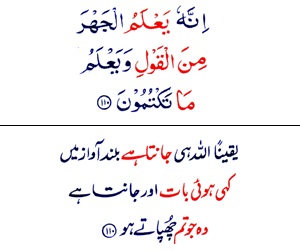 اِنَّهٗ يَعْلَمُ الْجَهْرَ
مِنَ الْقَوْلِ وَيَعْلَمُ
مَا تَكْتُمُوْنَ ﴿۱۱۰﴾
یقیناً اللہ ہی جانتا ہے بلند آواز میں
کہی ہوئی بات اور جانتا ہے
وہ جو تم چُھپاتے ہو ﴿۱۱۰﴾